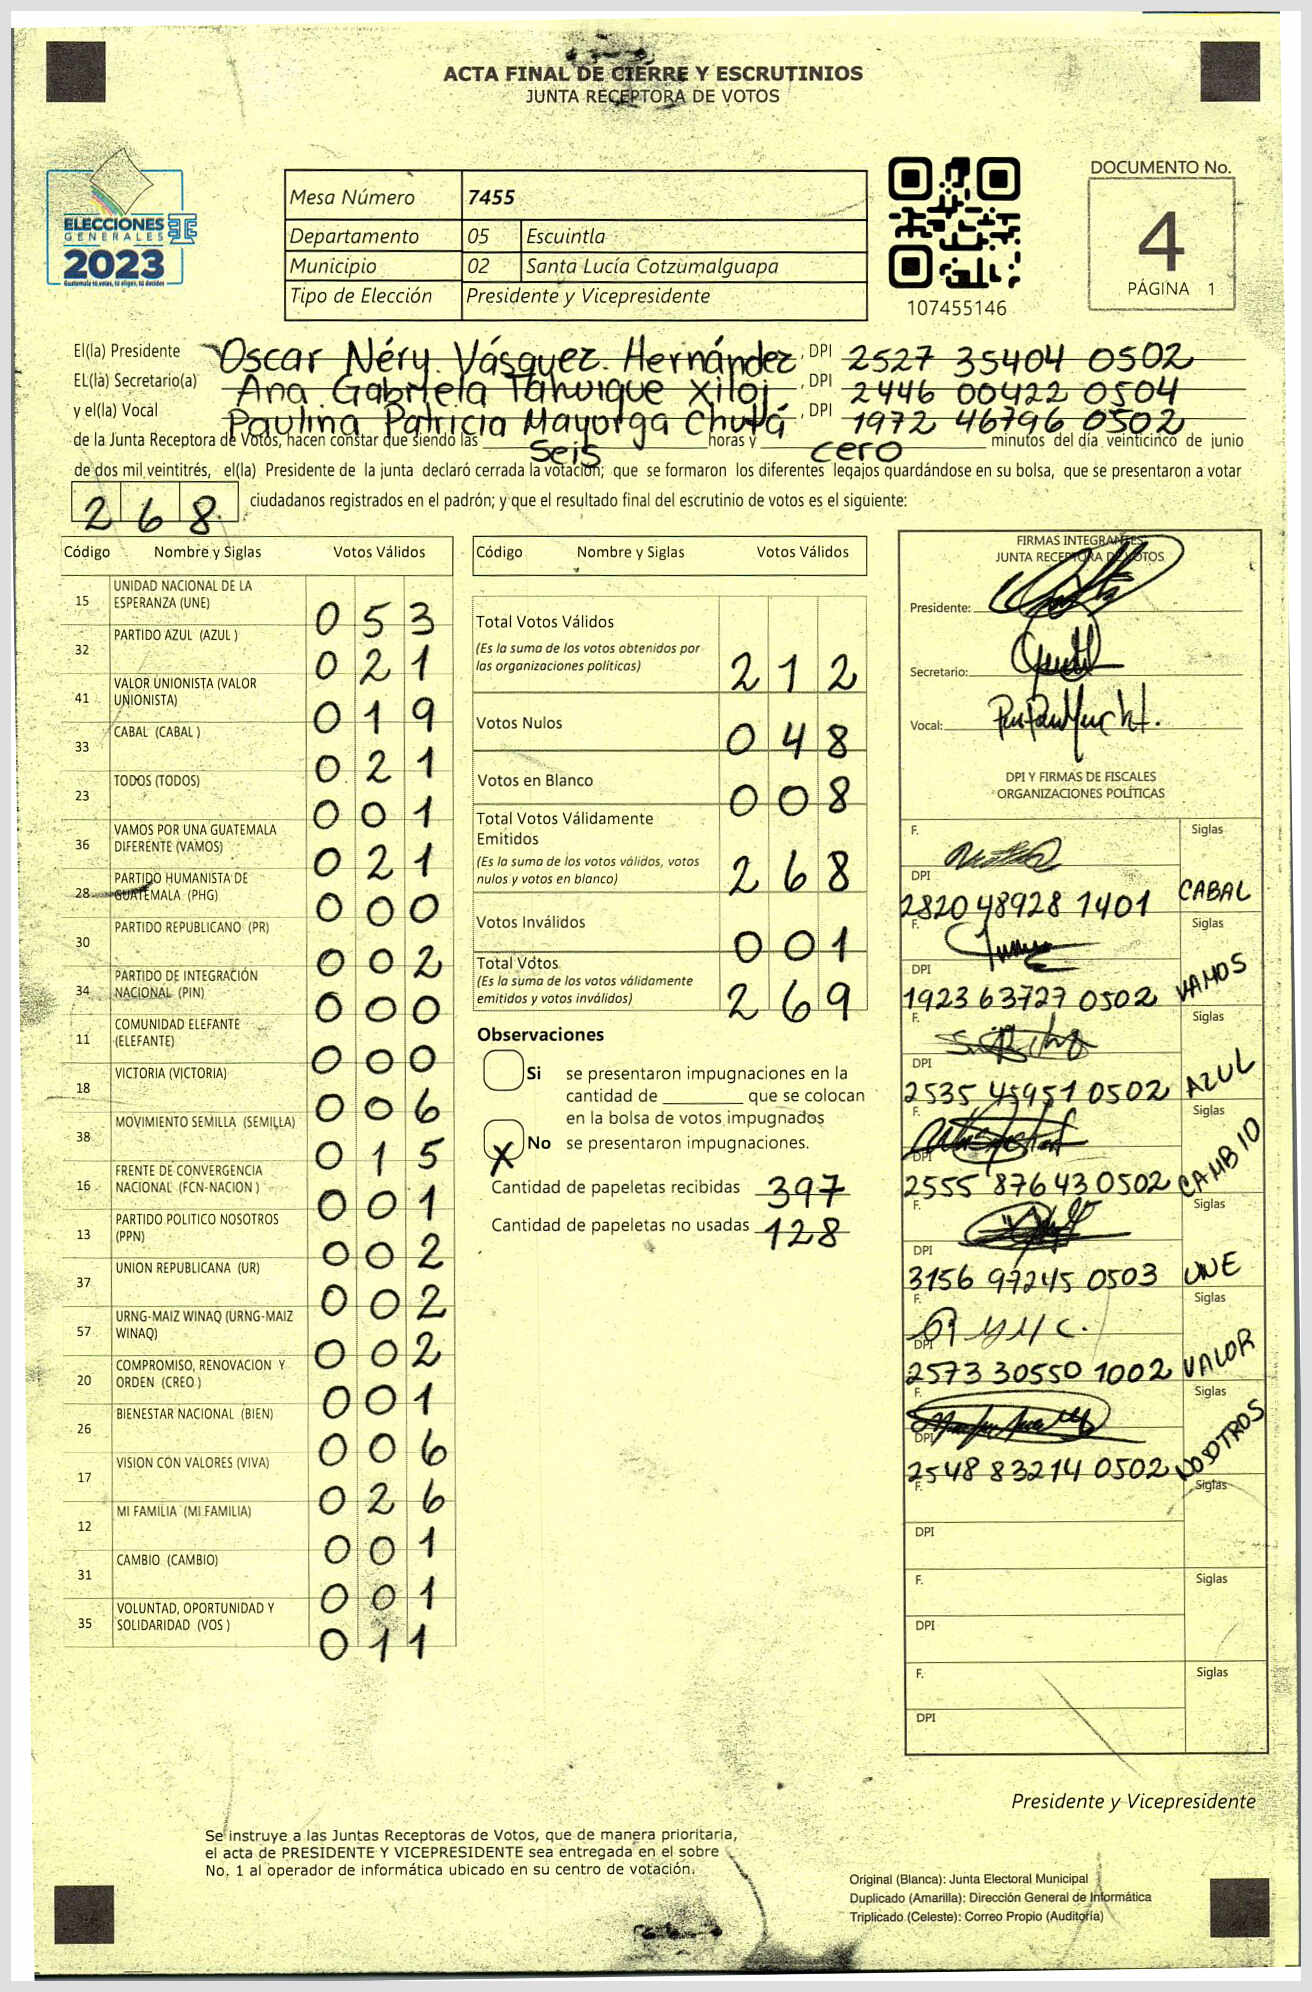 ACTA FINAL DE CIERRE Y ESCRUTINIOS
JUNTA RECEPTORA DE VOTOS
ELECCIONES
GENERALES
2023
Guatemala tú votas, tú eliges, tú decides
Mesa Número 7455
Departamento 05 Escuintla
Municipio 02 Santa Lucía Cotzumalguapa
Tipo de Elección Presidente y Vicepresidente
107455146
DOCUMENTO No.
4
PÁGINA 1
El(la) Presidente Oscar Néry Vásquez Hernández, DPI 2527 35404 0502
EL(la) Secretario(a) Ana Gabriela Tahuique Xiloj, DPI 2446 00422 0504
y el(la) Vocal Paulina Patricia Mayorga Chutá, DPI 1972 46796 0502
de la Junta Receptora de Votos, hacen constar que siendo las seis horas y cero minutos del día veinticinco de junio
de dos mil veintitrés, el(la) Presidente de la junta declaró cerrada la votación; que se formaron los diferentes legajos guardándose en su bolsa, que se presentaron a votar
268 ciudadanos registrados en el padrón; y que el resultado final del escrutinio de votos es el siguiente:
Código Nombre y Siglas Votos Válidos
15 UNIDAD NACIONAL DE LA ESPERANZA (UNE) 053
32 PARTIDO AZUL (AZUL ) 021
41 VALOR UNIONISTA (VALOR UNIONISTA) 019
33 CABAL (CABAL ) 021
23 TODOS (TODOS) 001
36 VAMOS POR UNA GUATEMALA DIFERENTE (VAMOS) 021
28 PARTIDO HUMANISTA DE GUATEMALA (PHG) 000
30 PARTIDO REPUBLICANO (PR) 002
34 PARTIDO DE INTEGRACIÓN NACIONAL (PIN) 000
11 COMUNIDAD ELEFANTE (ELEFANTE) 000
18 VICTORIA (VICTORIA) 006
38 MOVIMIENTO SEMILLA (SEMILLA) 015
16 FRENTE DE CONVERGENCIA NACIONAL (FCN-NACION ) 001
13 PARTIDO POLITICO NOSOTROS (PPN) 002
37 UNION REPUBLICANA (UR) 002
57 URNG-MAIZ WINAQ (URNG-MAIZ WINAQ) 002
20 COMPROMISO, RENOVACION Y ORDEN (CREO ) 001
26 BIENESTAR NACIONAL (BIEN) 006
17 VISION CON VALORES (VIVA) 026
12 MI FAMILIA (MI FAMILIA) 001
31 CAMBIO (CAMBIO) 001
35 VOLUNTAD, OPORTUNIDAD Y SOLIDARIDAD (VOS ) 011
Código Nombre y Siglas Votos Válidos
Total Votos Válidos
(Es la suma de los votos obtenidos por
las organizaciones políticas) 212
Votos Nulos 048
Votos en Blanco 008
Total Votos Válidamente
Emitidos
(Es la suma de los votos válidos, votos
nulos y votos en blanco) 268
Votos Inválidos 001
Total Votos
(Es la suma de los votos válidamente
emitidos y votos inválidos) 269
Observaciones
Si se presentaron impugnaciones en la
cantidad de ________ que se colocan
en la bolsa de votos impugnados
X No se presentaron impugnaciones.
Cantidad de papeletas recibidas 397
Cantidad de papeletas no usadas 128
FIRMAS INTEGRANTES
JUNTA RECEPTORA DE VOTOS
Presidente:
Secretario:
Vocal:
DPI Y FIRMAS DE FISCALES
ORGANIZACIONES POLÍTICAS
F. Siglas
DPI
2820 48928 1401 CABAL
F. Siglas
DPI
1923 63727 0502 VAMOS
F. Siglas
DPI
2535 45951 0502 AZUL
F. Siglas
DPI
2555 87643 0502 CAMBIO
F. Siglas
DPI
3156 97245 0503 UNE
F. Siglas
DPI
2573 30550 1002 VALOR
F. Siglas
DPI
2548 83214 0502 NOSOTROS
F. Siglas
DPI
F. Siglas
DPI
F. Siglas
DPI
Presidente y Vicepresidente
Se instruye a las Juntas Receptoras de Votos, que de manera prioritaria,
el acta de PRESIDENTE Y VICEPRESIDENTE sea entregada en el sobre
No. 1 al operador de informática ubicado en su centro de votación.
Original (Blanca): Junta Electoral Municipal
Duplicado (Amarilla): Dirección General de Informática
Triplicado (Celeste): Correo Propio (Auditoría)